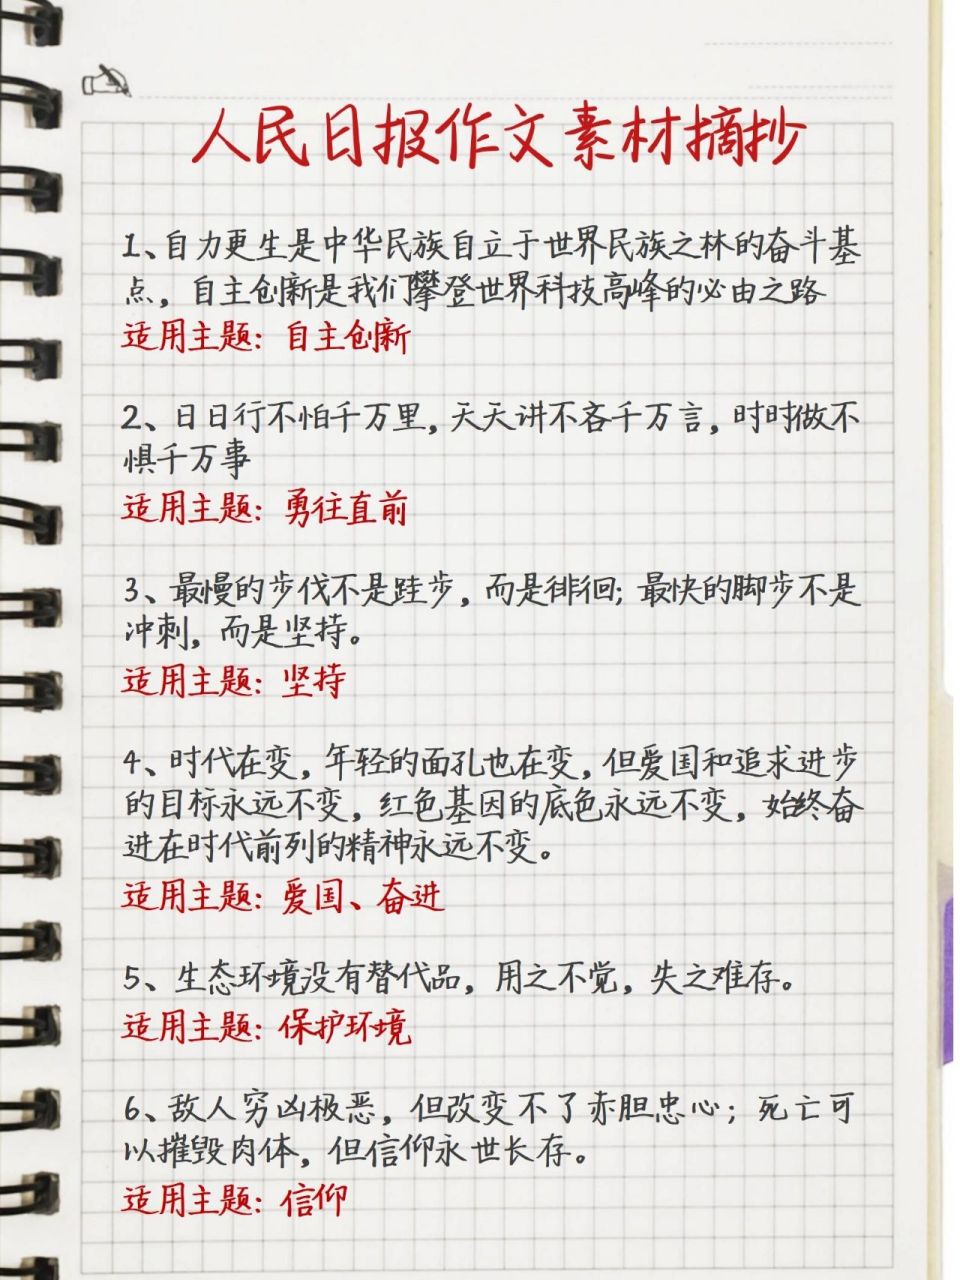 人民日报作文素材摘抄
1、自力更生是中华民族自立于世界民族之林的奋斗基
点，自主创新是我们攀登世界科技高峰的必由之路
适用主题：自主创新
2、日日行不怕千万里，天天讲不吝千万言，时时做不
惧千万事
适用主题：勇往直前
3、最慢的步伐不是跬步，而是徘徊；最快的脚步不是
冲刺，而是坚持。
适用主题：坚持
4、时代在变，年轻的面孔也在变，但爱国和追求进步
的目标永远不变，红色基因的底色永远不变，始终奋
进在时代前列的精神永远不变。
适用主题：爱国、奋进
5、生态环境没有替代品，用之不觉，失之难存。
适用主题：保护环境
6、敌人穷凶极恶，但改变不了赤胆忠心；死亡可
以摧毁肉体，但信仰永世长存。
适用主题：信仰